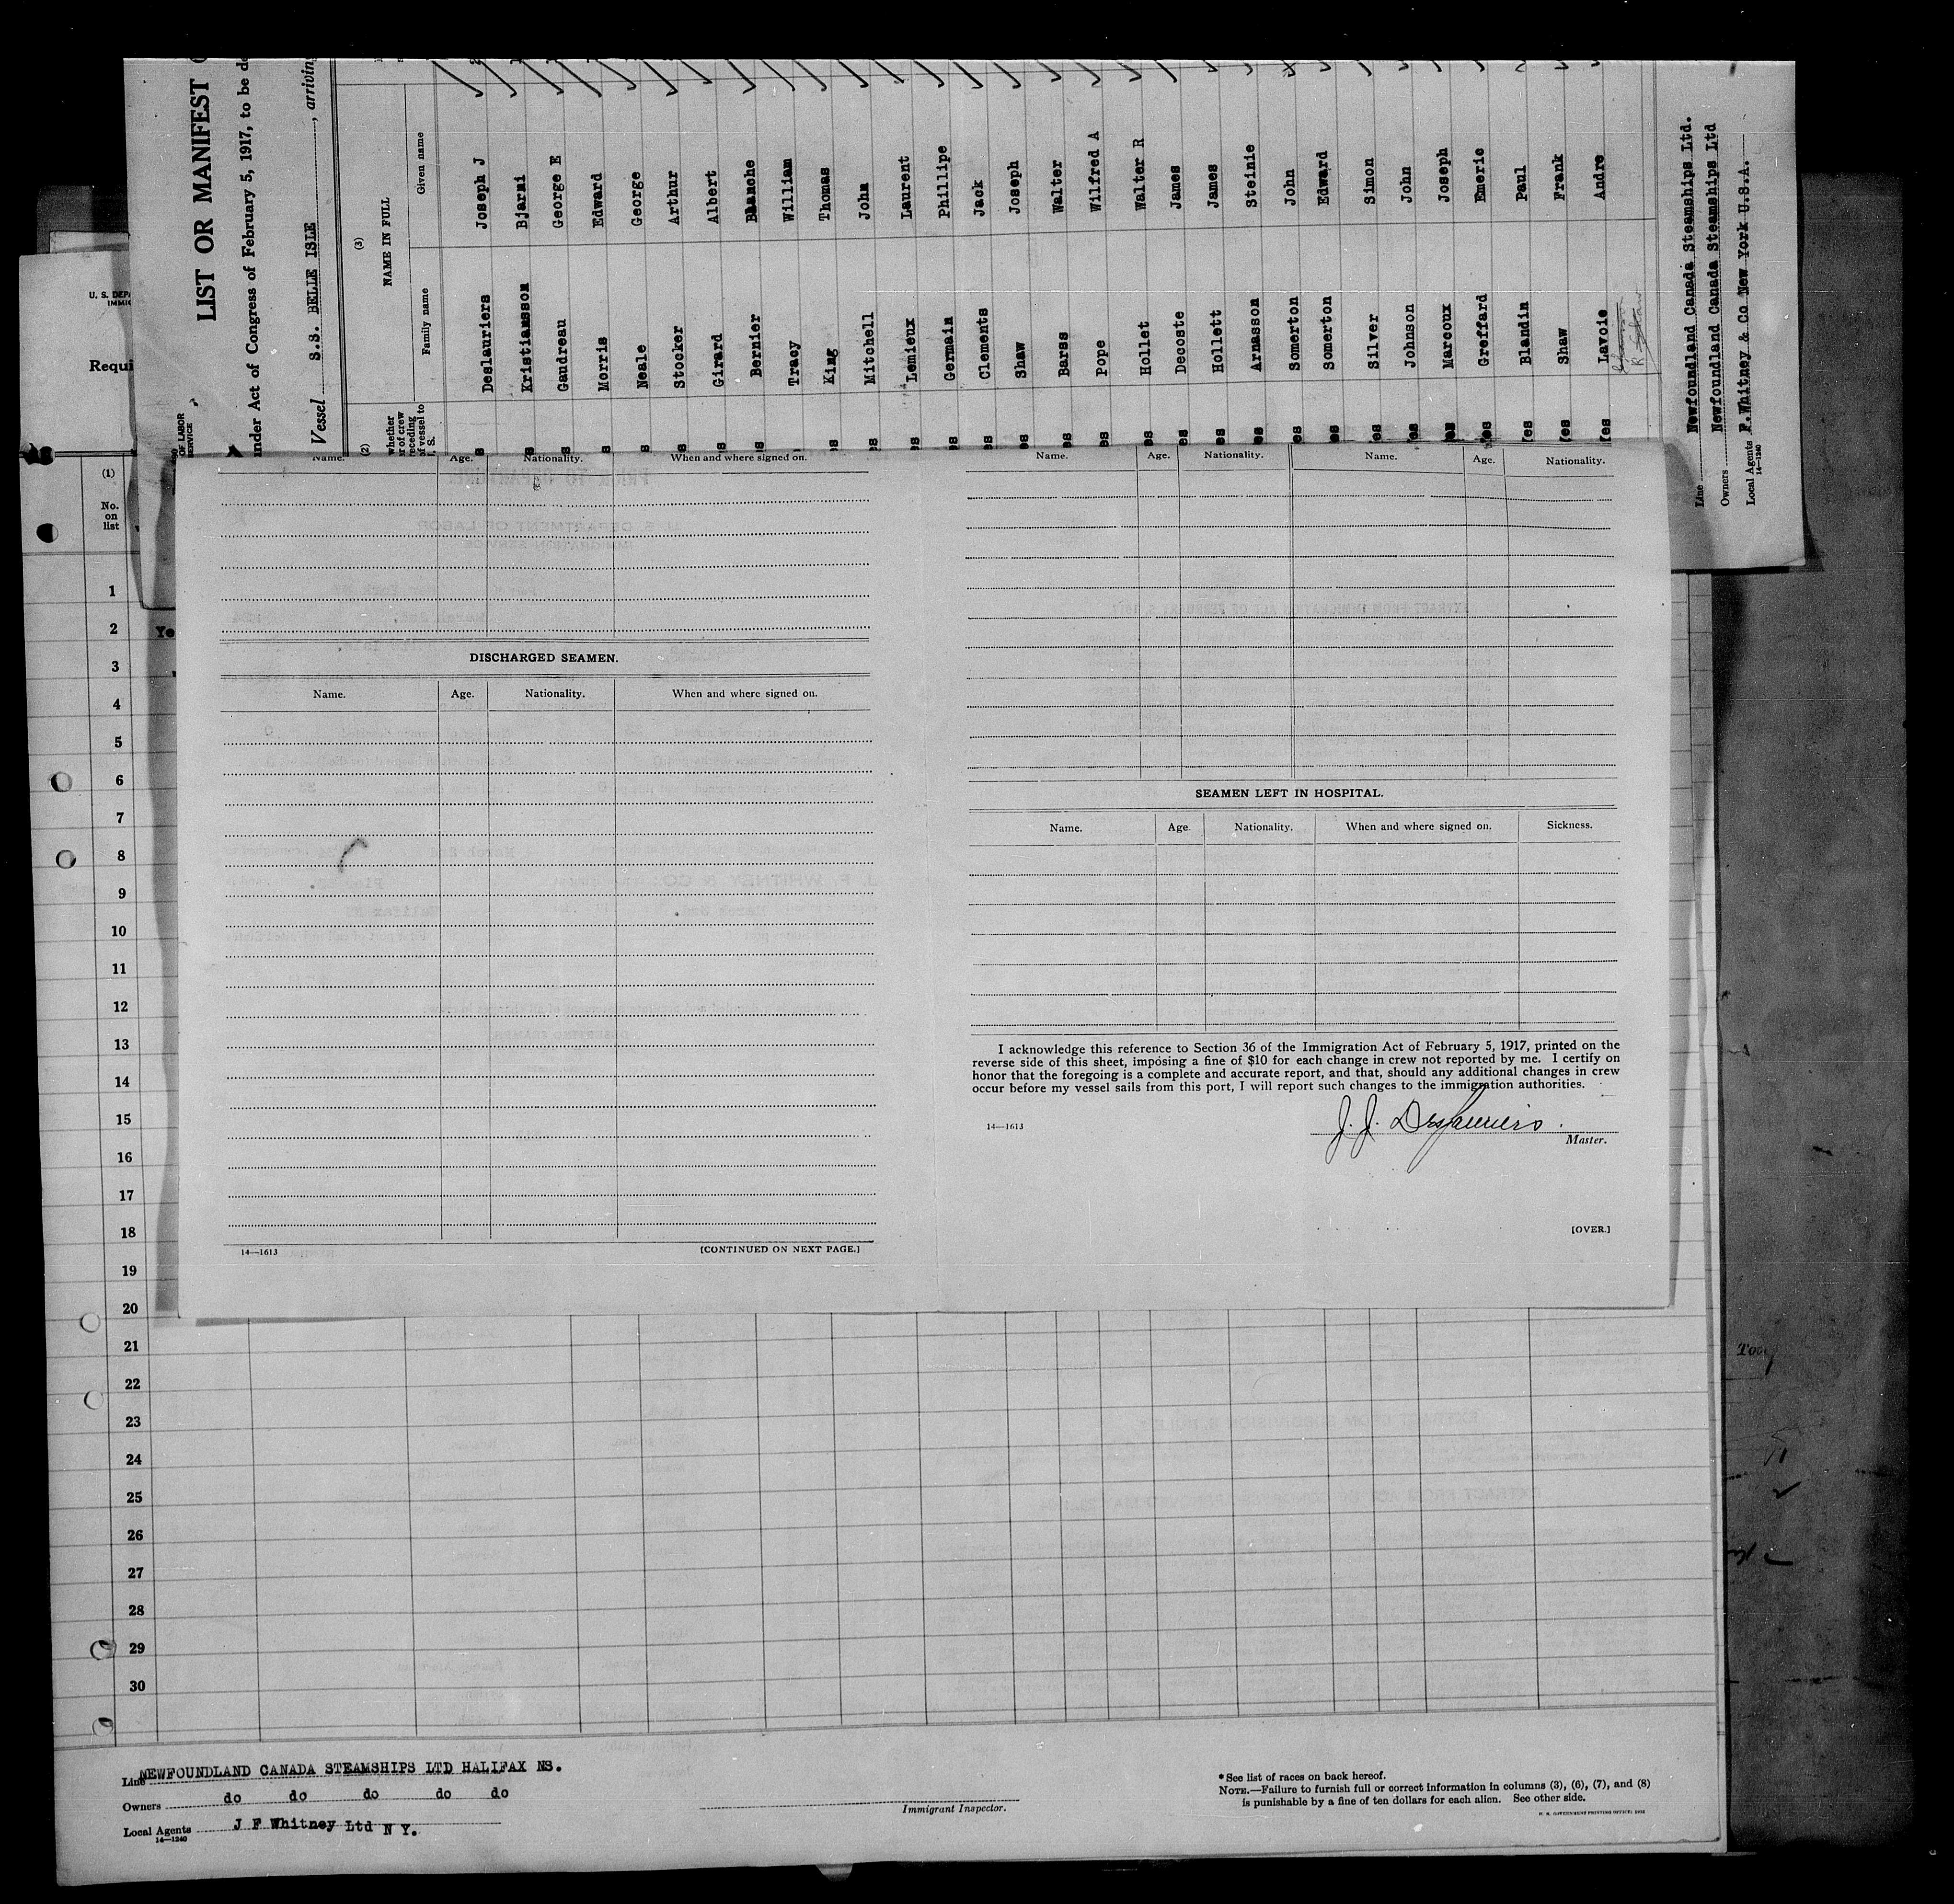 LIST OR MANIFEST
under Act of Congress of February 5, 1917, to be de
Vessel S.S. BELLE ISLE, arriving
(3)
NAME IN FULL
Family name Given name
(2)
whether
of crew
Deslauriers Joseph J
Kristiansson Bjarni
Gaudreau George E
Morris Edward
Neale George
Stocker Arthur
Girard Albert
Bernier Blanche
Tracy William
King Thomas
Mitchell John
Lemieux Laurent
Germain Phillipe
Clements Jack
Shaw Joseph
Barss Walter
Pope Wilfred A
Hollet Walter R
Decoste James
Hollett James
Arnasson Steinie
Somerton John
Somerton Edward
Silver Simon
Johnson John
Marcoux Joseph
Greffard Emeric
Blandin Paul
Shaw Frank
Lavoie Andre
Line Newfoundland Canada Steamships Ltd.
Owners Newfoundland Canada Steamships Ltd
Local Agents F.Whitney & Co New York U.S.A.
14—1240
U. S. DEPA
IMMIG
Requi
OF LABOR
SERVICE
(1)
No.
on
list
1
2 Ye
3
4
5
6
7
8
9
10
11
12
13
14
15
16
17
18
19
20
21
22
23
24
25
26
27
28
29
30
Name. Age. Nationality. When and where signed on.
DISCHARGED SEAMEN.
Name. Age. Nationality. When and where signed on.
14—1613 [CONTINUED ON NEXT PAGE.]
Name. Age. Nationality. Name. Age. Nationality.
SEAMEN LEFT IN HOSPITAL.
Name. Age. Nationality. When and where signed on. Sickness.
I acknowledge this reference to Section 36 of the Immigration Act of February 5, 1917, printed on the
reverse side of this sheet, imposing a fine of $10 for each change in crew not reported by me. I certify on
honor that the foregoing is a complete and accurate report, and that, should any additional changes in crew
occur before my vessel sails from this port, I will report such changes to the immigration authorities.
14—1613 J. J. Deslauriers.
Master.
[OVER.]
Line NEWFOUNDLAND CANADA STEAMSHIPS LTD HALIFAX NS.
Owners do do do do do
Local Agents J F Whitney Ltd N Y.
14—1240
Immigrant Inspector.
* See list of races on back hereof.
NOTE.—Failure to furnish full or correct information in columns (3), (6), (7), and (8)
is punishable by a fine of ten dollars for each alien. See other side.